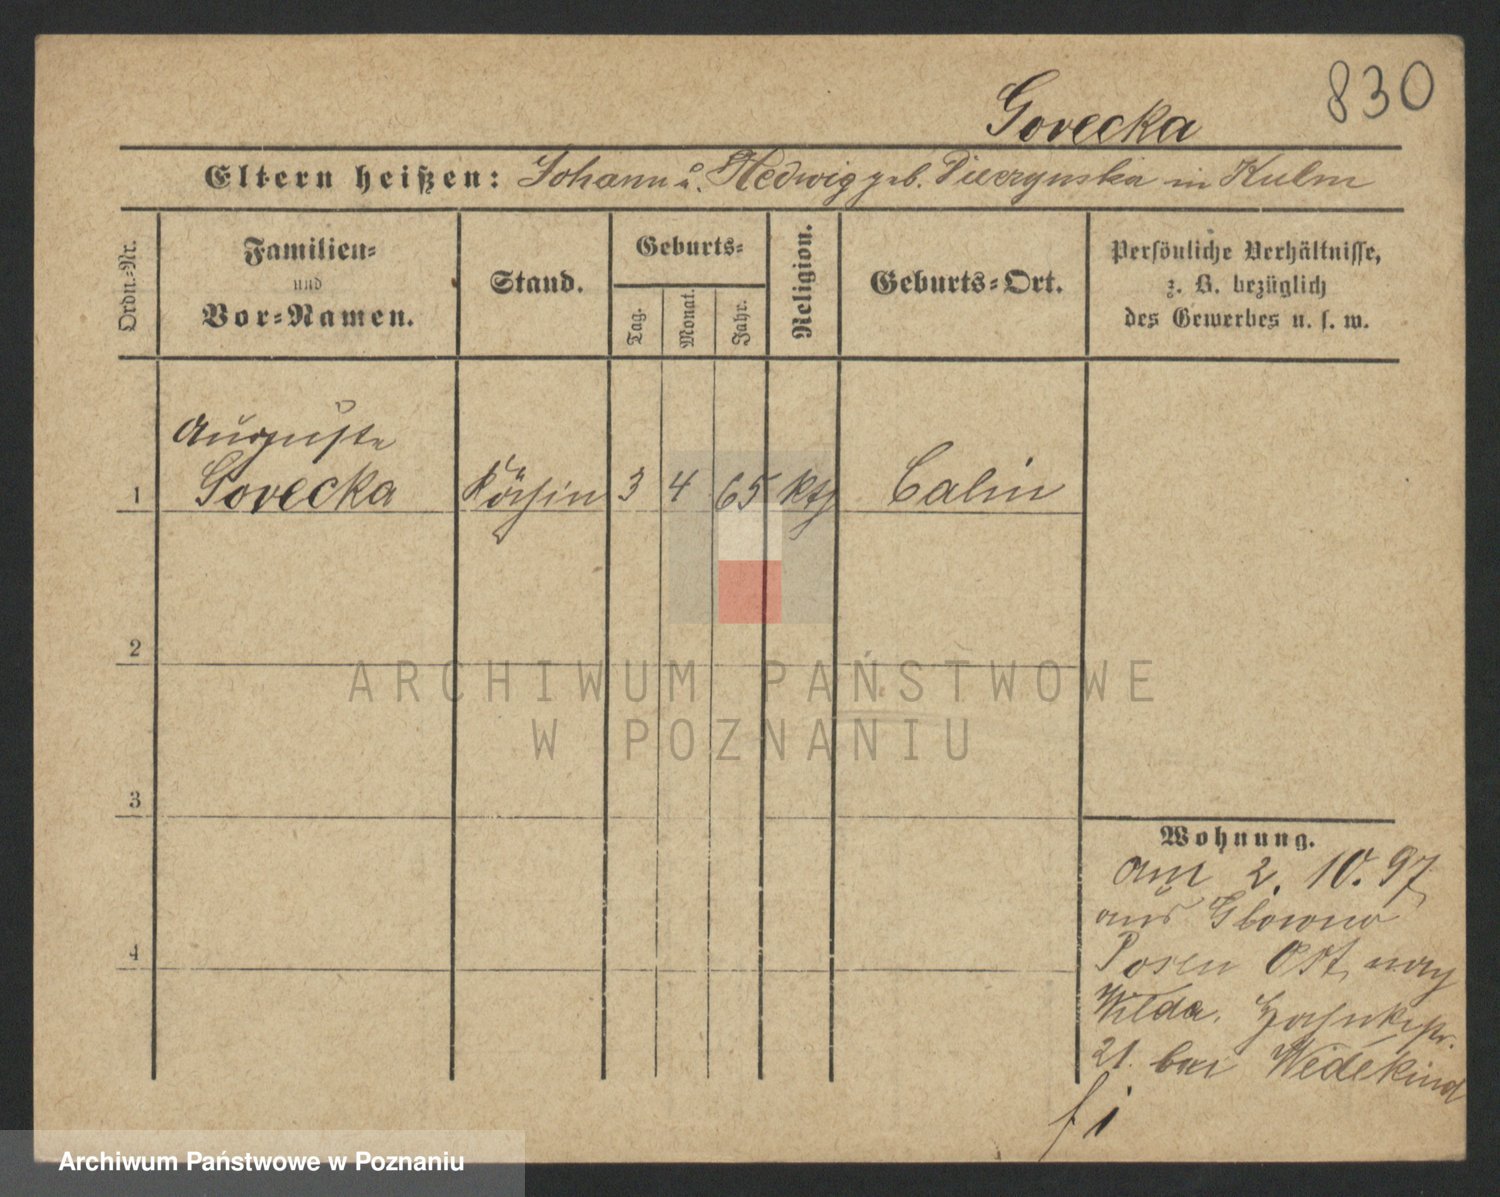 830
Govecka
Eltern heißen: Johann u. Hedwig geb. in Kulm
Ordn.-Nr.
Familien-
und
Vor-Namen.
Stand.
Geburts-
Tag.
Monat.
Jahr.
Religion.
Geburts-Ort.
Persönliche Verhältnisse,
z. B. bezüglich
des Gewerbes u. s. w.
Auguste
1 Govecka Köchin 3 4 65 kth
2
3
4
Wohnung.
am 2. 10. 97
aus Glowno
Posen Ost, nach
Wilda.
21. bei Wedekind
ARCHIWUM PAŃSTWOWE
W POZNANIU
Archiwum Państwowe w Poznaniu